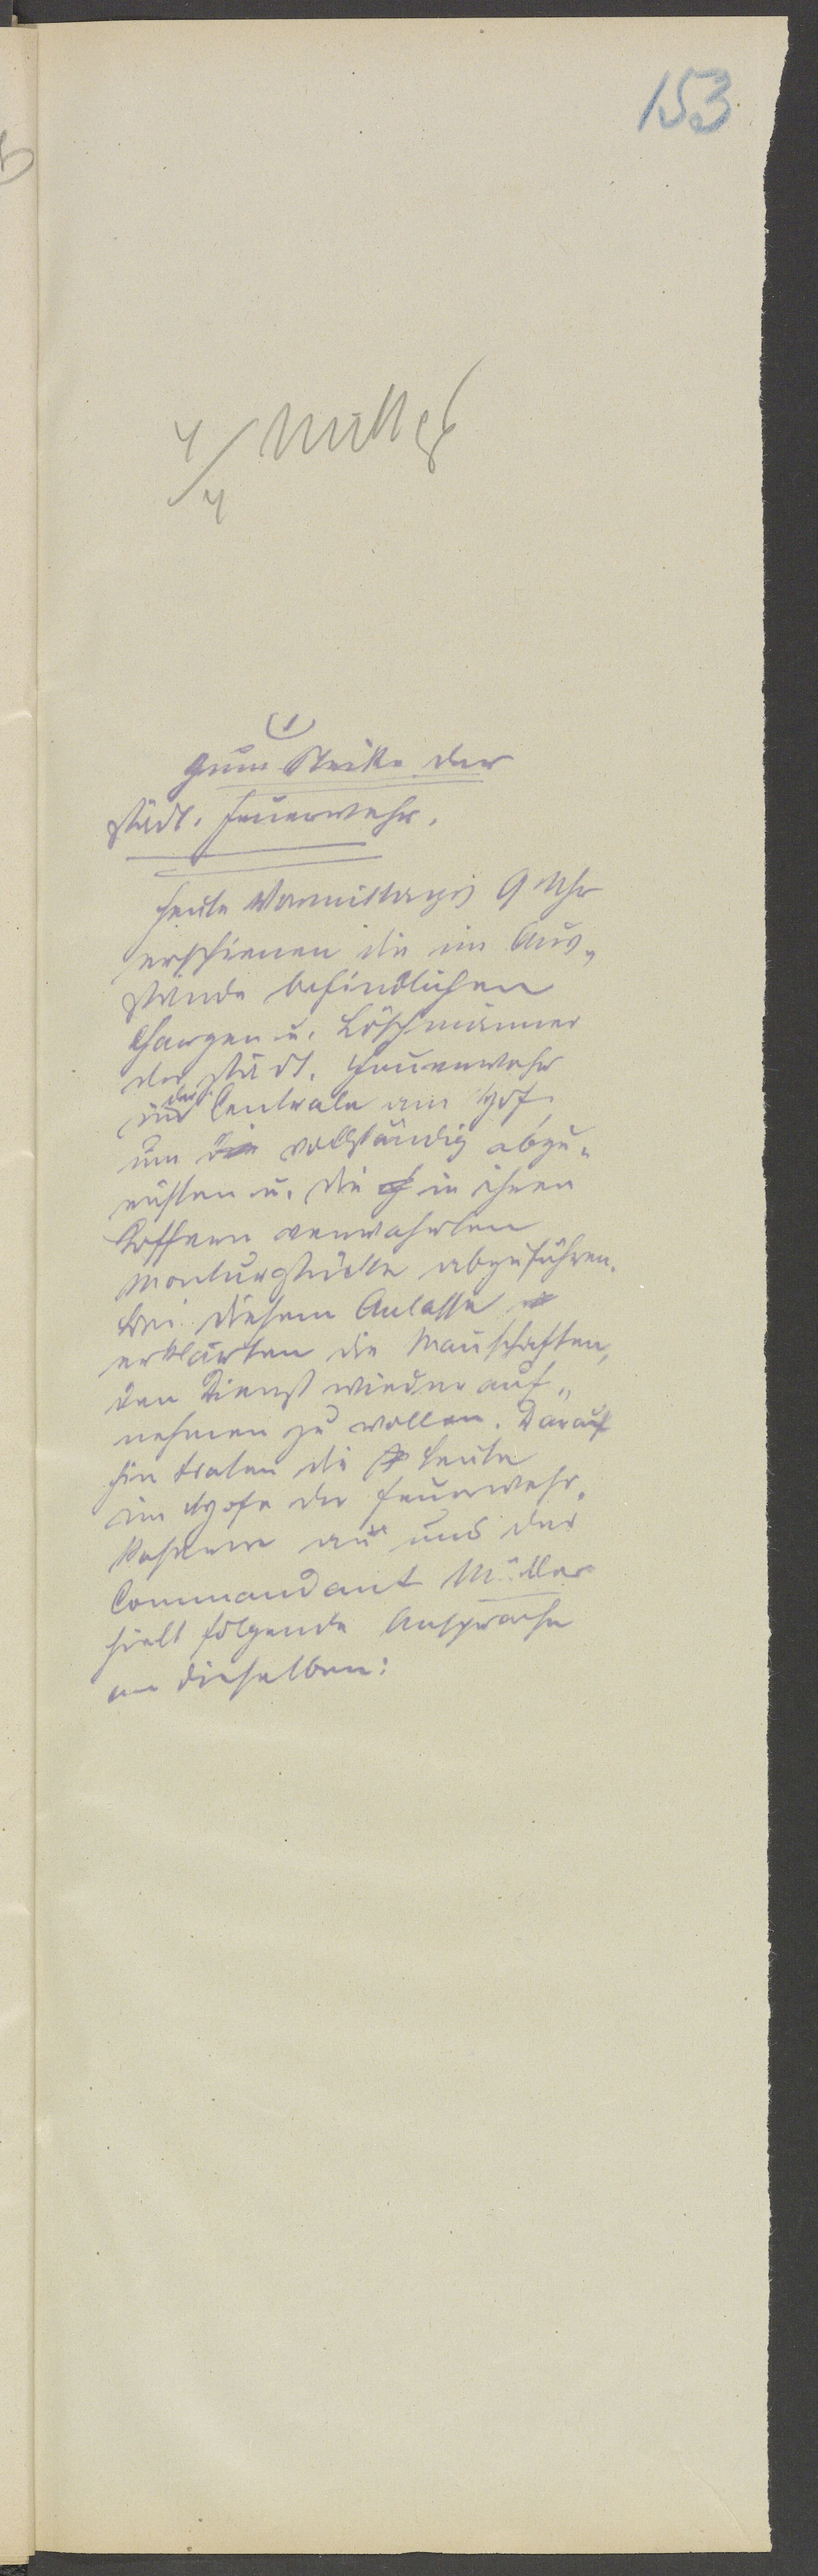 153
4/4 Mittgs
(1)
Zum Strike der
städt. Feuerwehr.
Heute Vormittags 9 Uhr
erschienen die im Aus-
stande befindlichen
Chargen u. Löschmänner
der städt. Feuerwehr
in der Centrale am Hof
um die vollständig abzu-
rüsten u. die in ihren
Koffern verwahrten
Monturstücke abzuführen.
Bei diesem Anlasse
erklärten die Manschaften,
den Dienst wieder auf-
nehmen zu wollen. Darauf
hin traten die Leute
im Hofe der Feuerwehr-
Kaserne an und der
Commandant Müller
hielt folgende Ansprache
an dieselben: